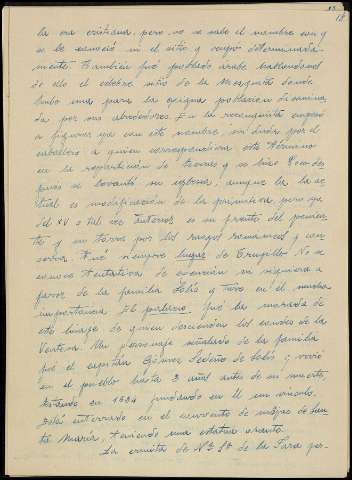 18
la era cristiana, pero no se sabe el nombre con q
se le conoció en el sitio y ocupó determinada-
mente. También fué poblado árabe hablándonos
de ello el célebre sitio de la Mezquita donde
hubo una para la exigua población disemina
da por sus alrededores. En la reconquista empezó
a figurar ya con este nombre, sin duda por el
caballero a quien correspondiera este término
en la repartición de tierras y se hizo
pués se levantó su iglesia; aunque la ac-
tual es modificación de la primitiva pero ya
del XV o tal vez anterior es su puerta del ponien-
te y su torre por los rasgos romanicos q con
serva. Fué siempre lugar de Trujillo. No se
conoce tentativa de exención ni siquiera a
favor de la familia Solís q tuvo en él mucha
importancia. El palacio fué la morada de
este linaje de quien descienden los condes de la
Ventosa. Un personaje señalado de la familia
fué el capitán Gómez Sedeño de Solís y vivió
en el pueblo hasta 3 años antes de su muerte,
en 1634 fundando en él un vínculo.
Está enterrado en el convento de monjas de San-
ta María, teniendo una estatua orante.
La ermita de Nª Sª de la Jara per-